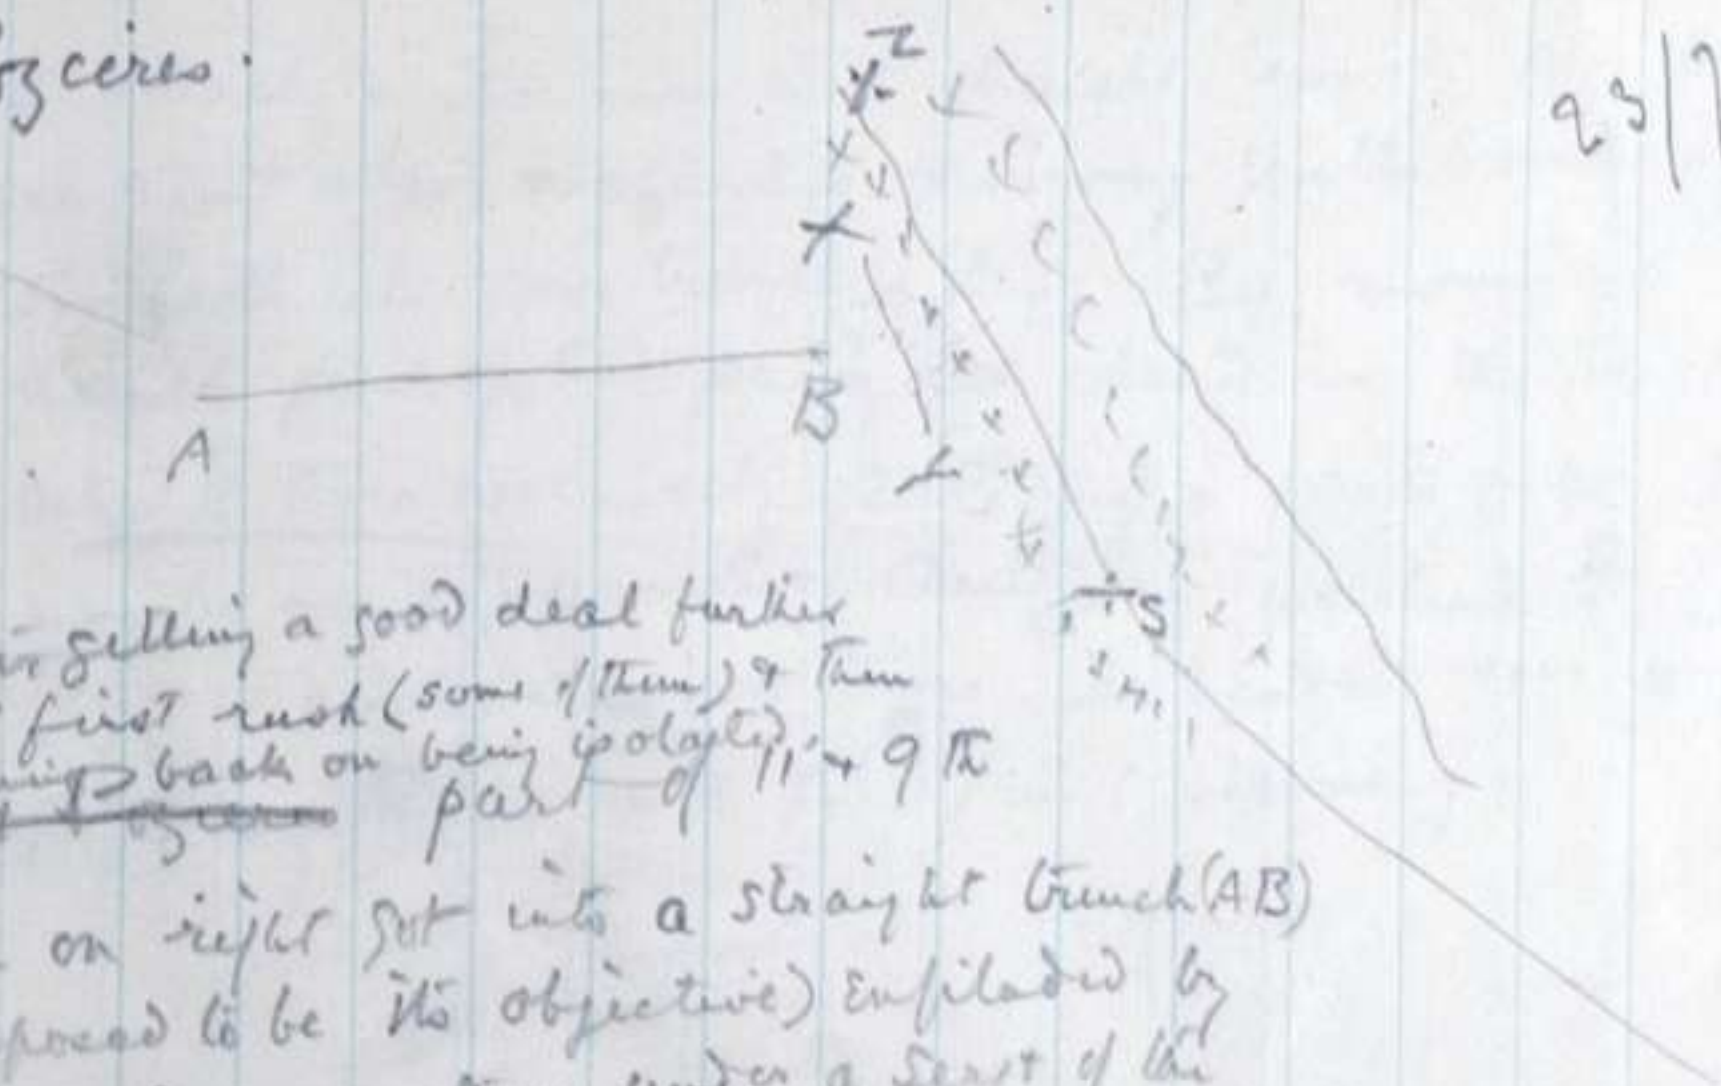 Z
23/7
A
B
S
getting a good deal further
first rush (some of them) & then
back on being isolated.
part of 11 & 9 th
on right got into a straight trench (AB)
to be its objective) enfiladed by
under a sort of